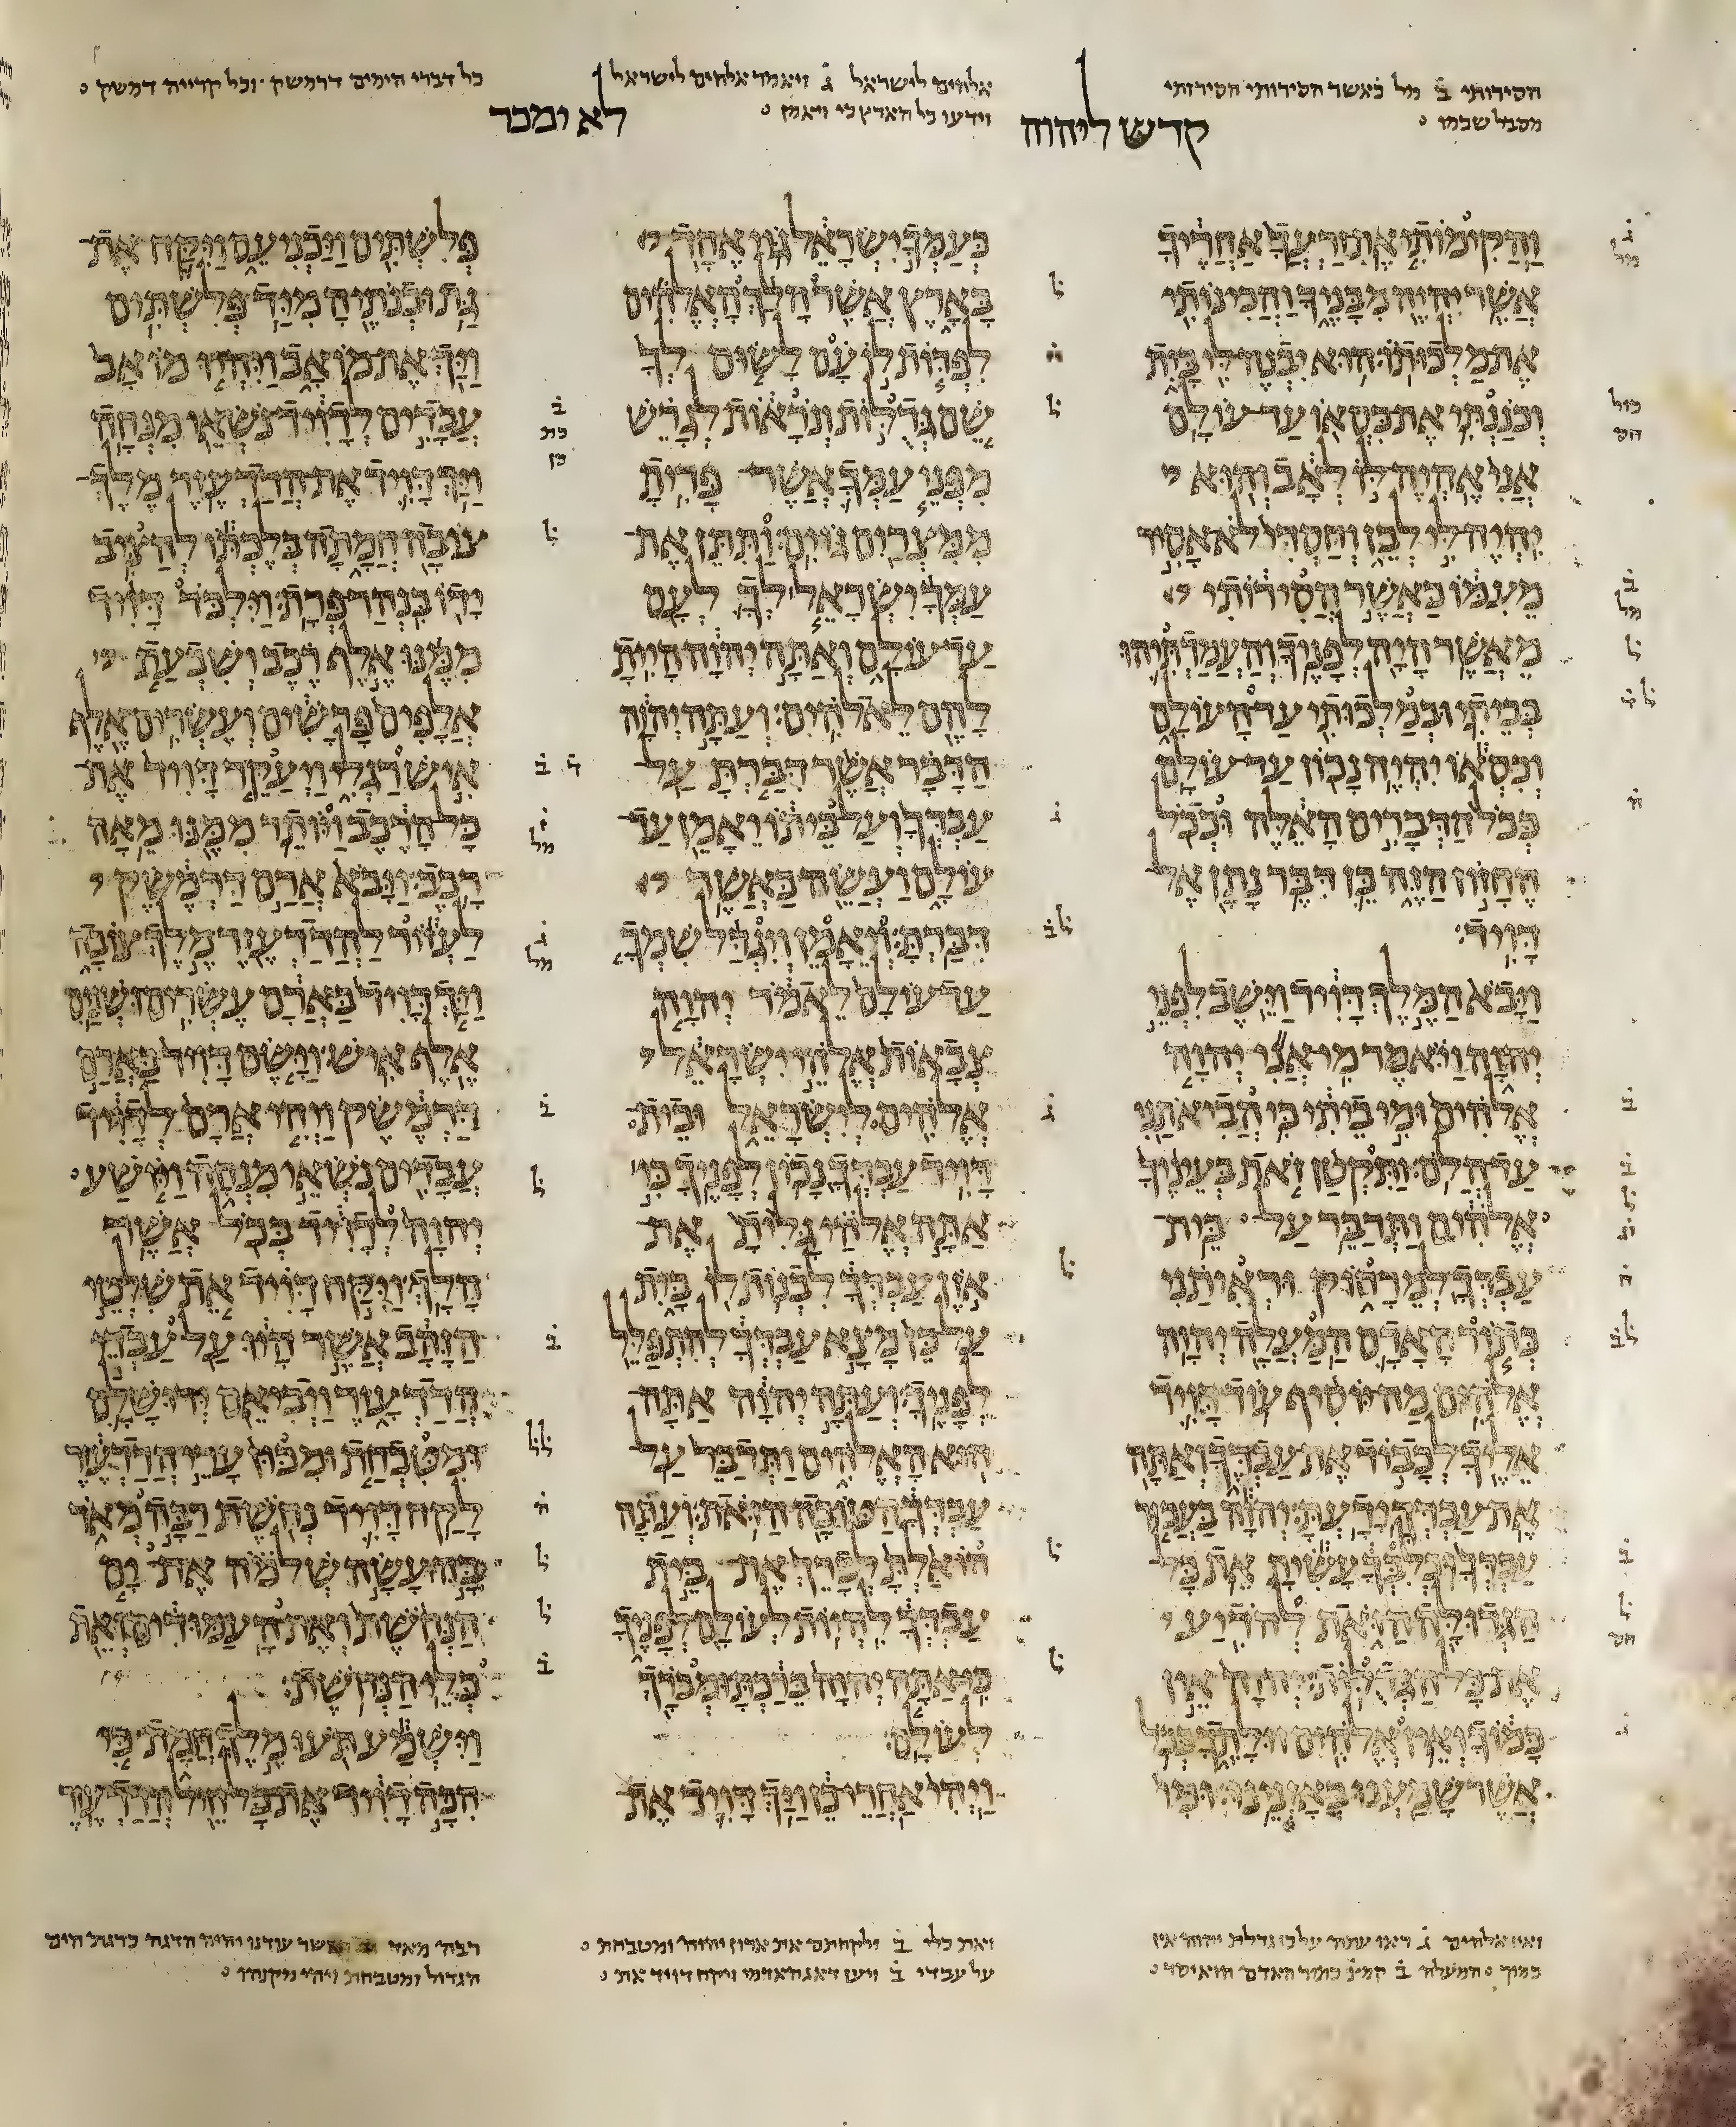 הסירותי ב מל כאשר הסירותי הסירותי
מסבל שכמו
אלהים לישראל ג ויאמר אלהים לישראל
וידעו כל הארץ כי ויאמן
כל דברי הימים דרמשק וכל קרייה דמשק
קדש ליהוה
לא ימכר
והקימותי את זרעך אחריך
אשר יהיה מבניך והכינותי
את מלכותו הוא יבנה לי בית
וכננתי את כסאו עד עולם
אני אהיה לו לאב והוא
יהיה לי לבן וחסדי לא אסיר
מעמו כאשר הסירותי
מאשר היה לפניך והעמדתיהו
בביתי ובמלכותי עד העולם
וכסאו יהיה נכון עד עולם
ככל הדברים האלה וככל
החזון הזה כן דבר נתן אל
דויד
ויבא המלך דויד וישב לפני
יהוה ויאמר מי אני יהוה
אלהים ומי ביתי כי הביאתני
עד הלם ותקטן זאת בעיניך
אלהים ותדבר על בית
עבדך למרחוק וראיתני
כתור האדם המעלה יהוה
אלהים מה יוסיף עוד דויד
אליך לכבוד את עבדך ואתה
את עבדך ידעת יהוה בעבור
עבדך וכלבך עשית את כל
הגדולה הזאת להדיע
את כל הגדלות יהוה אין
כמוך ואין אלהים זולתך בכל
אשר שמענו באזנינו ומי
כעמך ישראל גוי אחד
בארץ אשר הלך האלהים
לפדות לו עם לשום לך
שם גדלות ונראות לגרש
מפני עמך אשר פדית
ממצרים גוים ותתן את
עמך ישראל לך לעם
עד עולם ואתה יהוה היית
להם לאלהים ועתה יהוה
הדבר אשר דברת על
עבדך ועל ביתו יאמן עד
עולם ועשה כאשר
דברת ויאמן ויגדל שמך
עד עולם לאמר יהוה
צבאות אלהי ישראל
אלהים לישראל ובית
דויד עבדך נכון לפניך כי
אתה אלהי גלית את
אזן עבדך לבנות לו בית
על כן מצא עבדך להתפלל
לפניך ועתה יהוה אתה
הוא האלהים ותדבר על
עבדך הטובה הזאת ועתה
הואלת לברך את בית
עבדך להיות לעולם לפניך
כי אתה יהוה ברכת ומברך
לעולם
ויהי אחרי כן ויך דויד את
פלשתים ויכניעם ויקח את
גת ובנתיה מיד פלשתים
ויך את מואב ויהיו מואב
עבדים לדויד נשאי מנחה
ויך דויד את הדדעזר מלך
צובה חמתה בלכתו להציב
ידו בנהר פרת וילכד דויד
ממנו אלף רכב ושבעת
אלפים פרשים ועשרים אלף
איש רגלי ויעקר דויד את
כל הרכב ויותר ממנו מאה
רכב ויבא ארם דרמשק
לעזור להדדעזר מלך צובה
ויך דויד בארם עשרים ושנים
אלף איש וישם דויד בארם
דרמשק ויהי ארם לדויד
עבדים נשאי מנחה ויושע
יהוה לדויד בכל אשר
הלך ויקח דויד את שלטי
הזהב אשר היו על עבדי
הדדעזר ויביאם ירושלם
ומטבחת ומכון ערי הדדעזר
לקח דויד נחשת רבה מאד
בה עשה שלמה את ים
הנחשת ואת העמודים ואת
כלי הנחשת
וישמע תעו מלך חמת כי
הכה דויד את כל חיל הדדעזר
ואין אלהים ג ראו עתה על כן גדלת יהוה אין
כמוך המעלה ב קמי כתור האדם
ואת כלי ב ולקחתם את ארון יהוה ומטבחת
על עבדי ב ויען דאג האדמי ויקח דויד את
רבה מאד עודנו יהיה הדגה כדגת הים
הגדול ומטבחת ויהי מקנהו